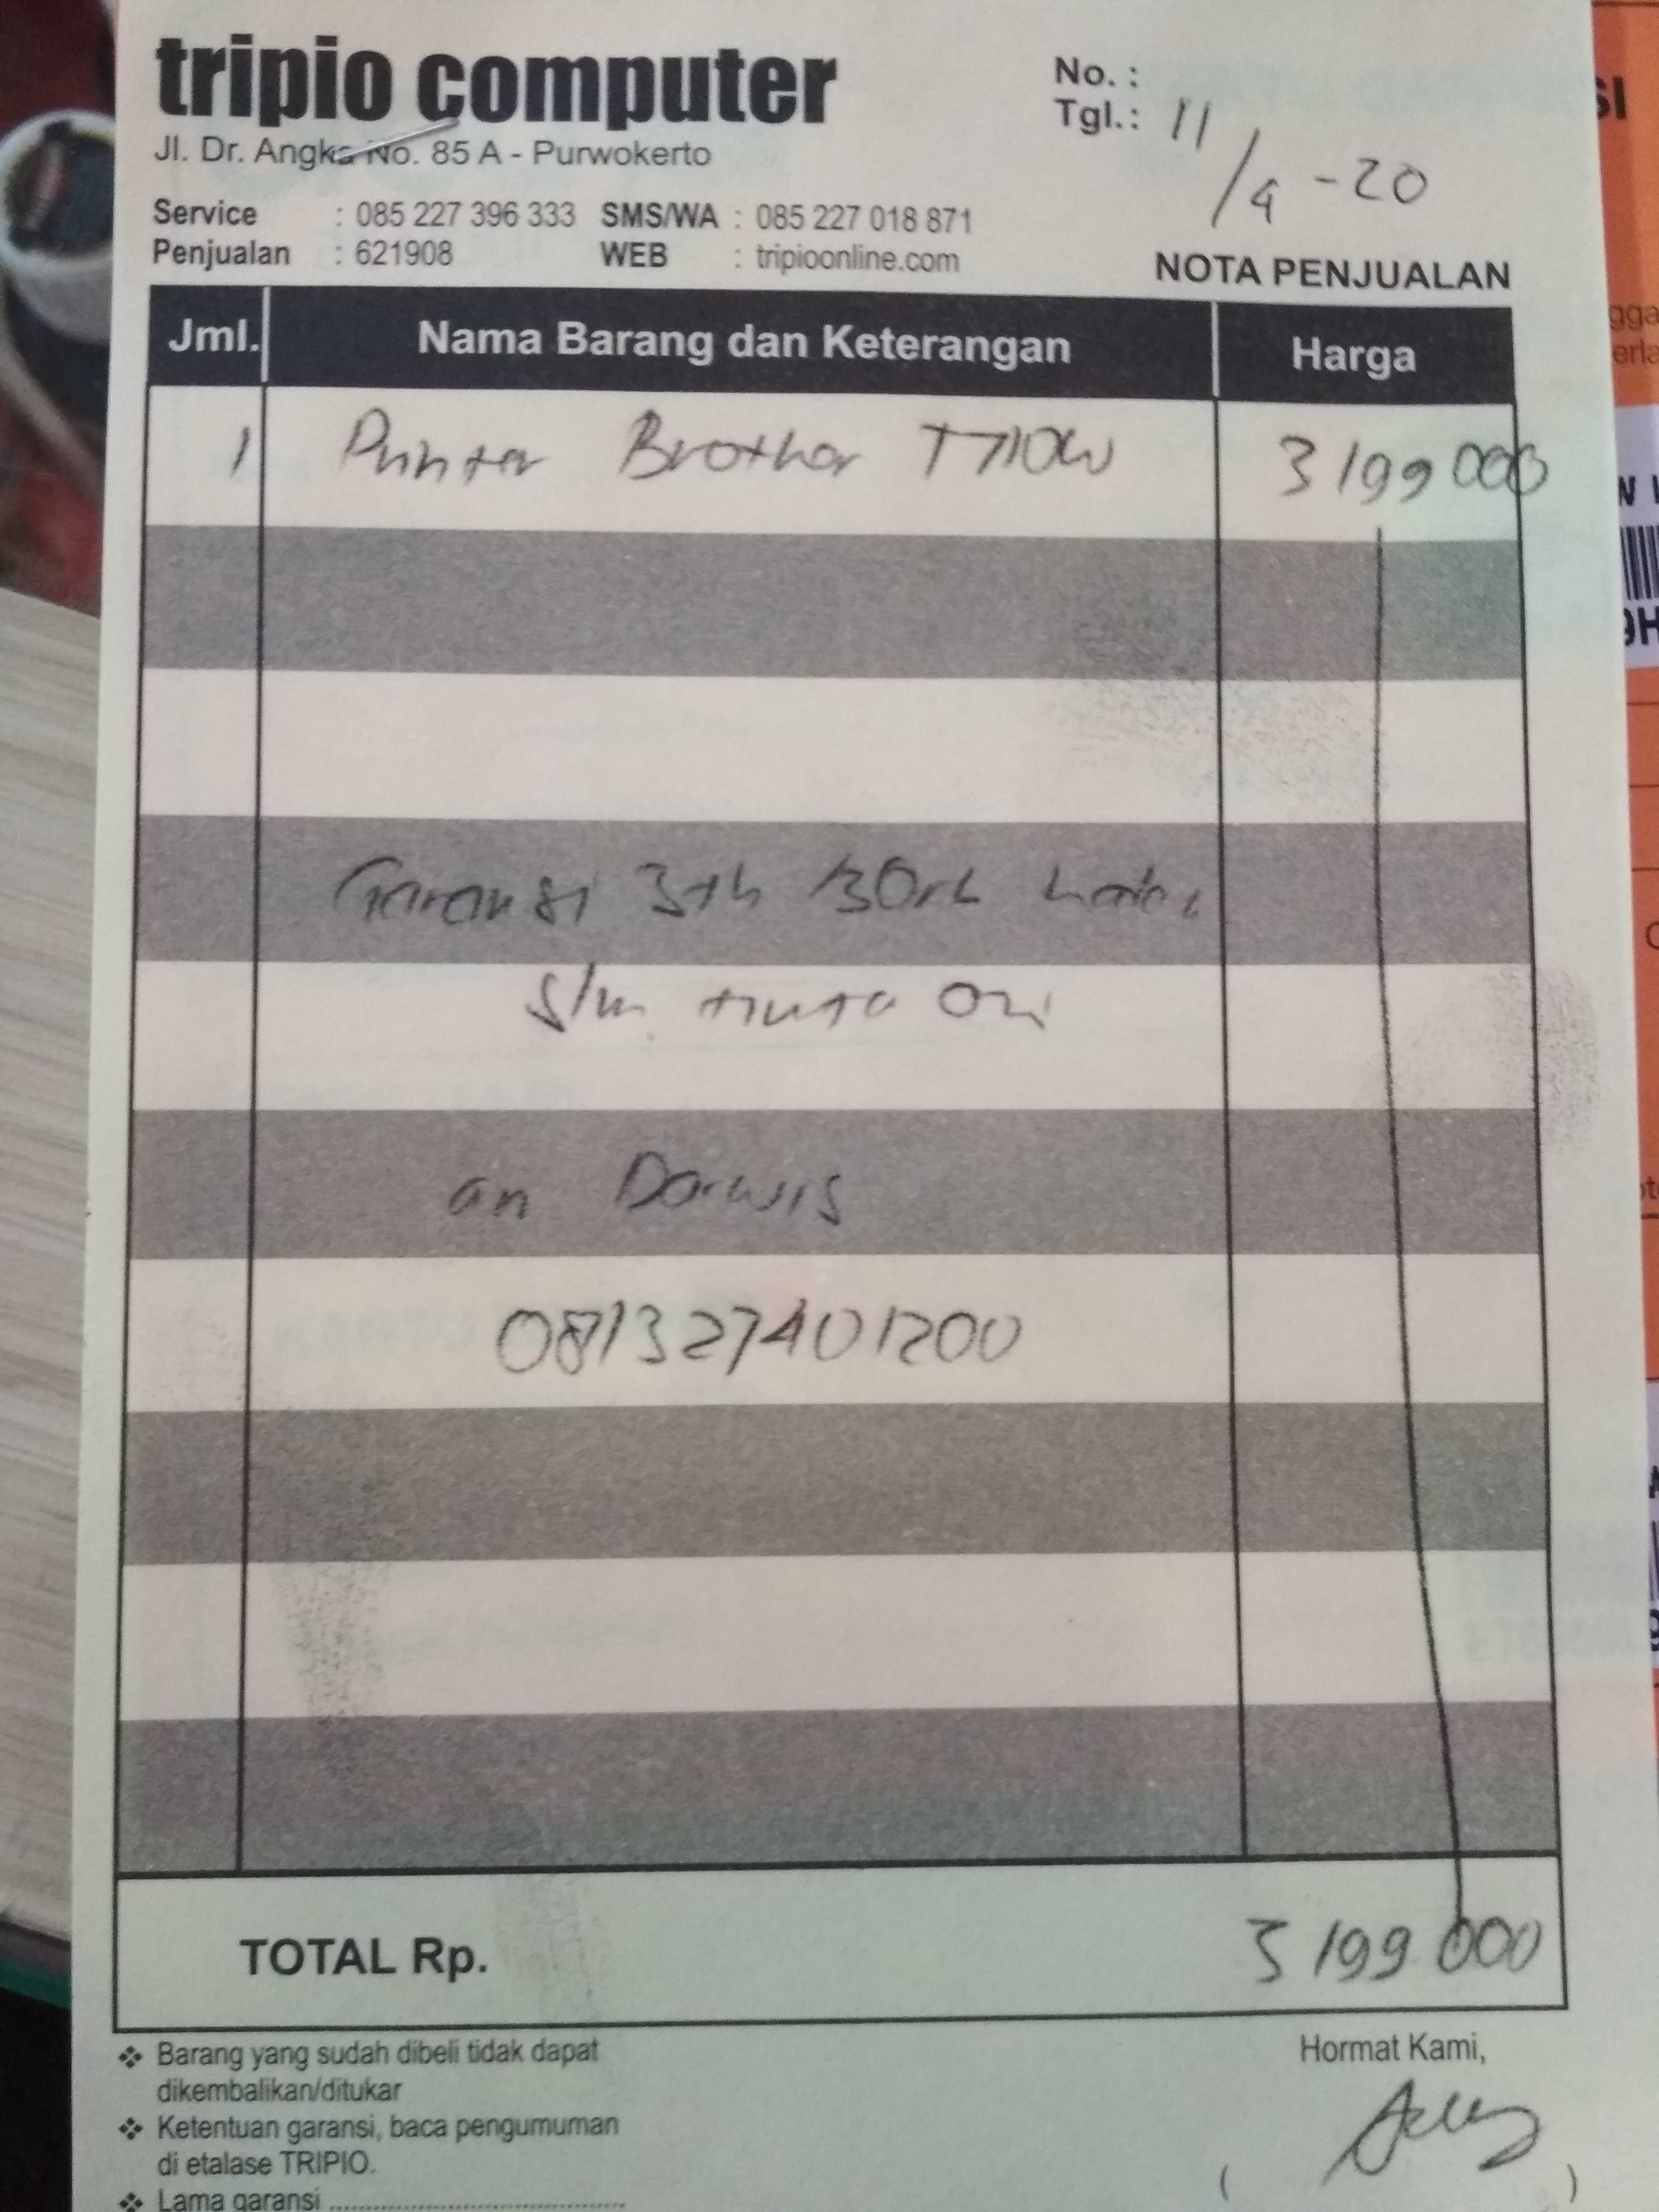 tripio computer
Jl. Dr. Angka No. 85 A - Purwokerto
No. :
Tgl. : 11/4 - 20
Service : 085 227 396 333 SMS/WA : 085 227 018 871
Penjualan : 621908 WEB : tripioonline.com
NOTA PENJUALAN
Jml. Nama Barang dan Keterangan Harga
1 Printer Brother T710W 3 199 000
Garansi 3th /30rb
s/m tinta Ori
an Darwis
081327401200
TOTAL Rp. 3 199 000
❖ Barang yang sudah dibeli tidak dapat
dikembalikan/ditukar
❖ Ketentuan garansi, baca pengumuman
di etalase TRIPIO.
❖ Lama garansi ..............................
Hormat Kami,
( )